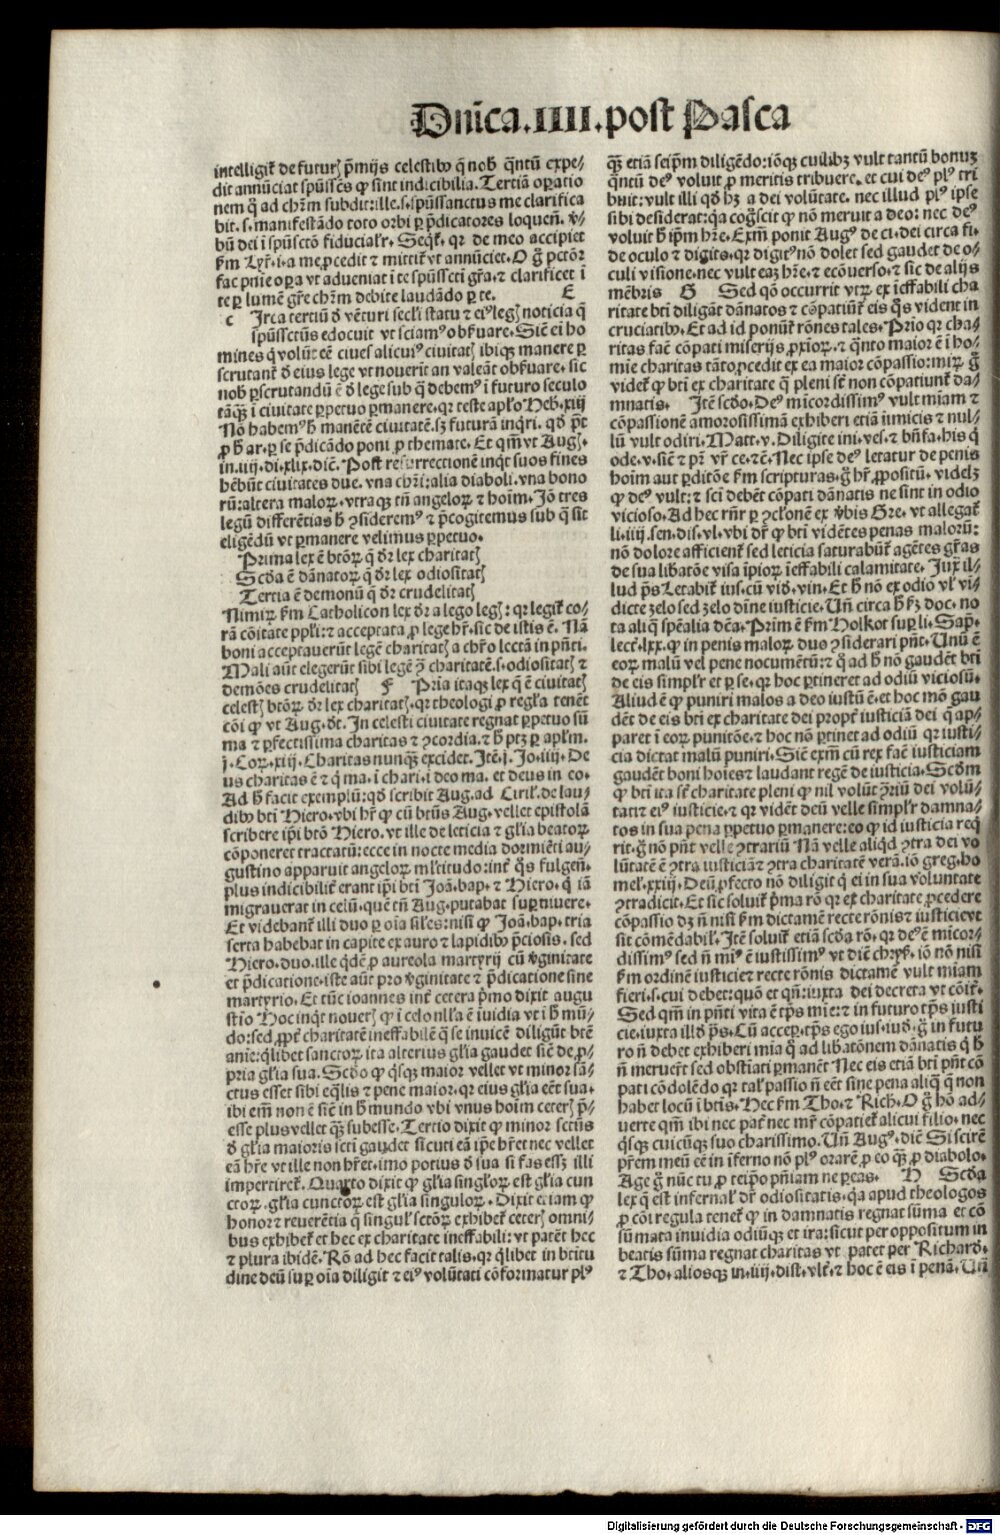 Dnīca.IIII.post Pasca
intelligit̄ de futurꝭ p̄mijs celestibꝰ q̄ nob̄ q̄ntū expe⸗
dit annūciat spūssēs ꝙ sint indicibilia. Tertiā oꝑatio
nem q̄ ad chr̄m subdit: ille.s. spūssanctus me clarifica
bit.s. manifestādo toto orbi ꝑ p̄dicatores loquen̄. v̄⸗
bū dei ī spūsctō fiducialr̄. Seqt̄. qr̄ de meo accipiet
fm̄ Lyr̄.i. a me ꝓcedit ⁊ mittit̄ vt annūciet. O g̊ pctōr
fac pn̄ie oꝑa vt adueniat ī te spūsscti gr̄a. ⁊ clarificet ī
te ꝑ lumē gr̄e chr̄m debite laudādo ꝑ te. E
c Irca tertiū d̄ vēturi secl̄i statu ⁊ eiꝰ legꝭ noticia q̄
spūssctus edocuit vt sciamꝰ obẜuare. Siē ei ho
mines q̄ volūt eē ciues alicuiꝰ ciuitatꝭ ibiqꝫ manere ꝑ
scrutant̄ d̄ eius lege vt nouerit an valeāt obẜuare. sic
nob̄ ꝑscrutandū ē d̄ lege sub q̄ debemꝰ ī futuro seculo
tāqꝫ ī ciuitate ꝑpetuo ꝑmanere. qr̄ teste apl̄o Heb̄. xiij
Nō habemꝰ h̄ manētē ciuitatē. sꝫ futurā inqr̄i. qd̄ p̄t
ꝓ h̄ ar. ꝑ se p̄dicādo poni ꝓ themate. Et qm̄ vt Augꝰ.
in.iiij.di.xlix.diē. Post resurrectionē inqt̄ suos fines
hēbūt ciuitates due. vna chr̄i: alia diaboli. vna bono
rū: altera maloꝝ. vtraqꝫ tn̄ angeloꝝ ⁊ hoīm. Iō tres
legū differētias h̄ ꝯsideremꝰ ⁊ p̄cogitemus sub q̄ sit
eligēdū vt ꝑmanere velimus ꝑpetuo.
Prima lex ē btōꝝ q̄ dr̄ lex charitatꝭ
Scd̄a ē dānatoꝝ q̄ dr̄ lex odiositatꝭ
Tertia ē demonū q̄ dr̄ crudelitatꝭ
Nimiꝝ fm̄ Catholicon lex dr̄ a lego legꝭ: qr̄ legit̄ co⸗
rā cōitate ppl̄i: ⁊ acceptata ꝓ lege hr̄. sic de istis ē. Nā
boni acceptauerūt legē charitatꝭ a chr̄o lectā in pn̄ti.
Mali aūt elegerūt sibi legē ꝯ̄ charitatē.s. odiositatꝭ ⁊
demōes crudelitatꝭ F Pria itaqꝫ lex q̄ ē ciuitatꝭ
celestꝭ btōꝝ dr̄ lex charitatꝭ. qr̄ theologi ꝓ regl̄a tenēt
cōi ꝙ vt Aug. dt̄. In celesti ciuitate regnat ꝑpetuo sū
ma ⁊ ꝑfectissima charitas ⁊ ꝯcordia. ⁊ h̄ ptꝫ ꝑ apl̄m.
j. Coꝝ. xiij. Charitas nunqꝫ excidet. Itē. j. Jo. iiij. De
us charitas ē ⁊ q̄ ma. ī chari. ī deo ma. et deus in eo.
Ad h̄ facit exemplū: qd̄ scribit Aug. ad Ciril. de lau⸗
dibꝰ bti Hiero. vbi hr̄ ꝙ cū btūs Aug. vellet epistolā
scribere ip̄i btō Hiero. vt ille de leticia ⁊ gl̄ia beatoꝝ
cōponeret tractatū: ecce in nocte media dormiēti au⸗
gustino apparuit angeloꝝ ml̄titudo: int̄ q̄s fulgen̄.
plus indicibilit̄ erant ip̄i bti Joā. bap. ⁊ Hiero. q̄ iā
migrauerat in celū. quē tn̄ Aug. putabat suꝑuiuere.
Et videbant̄ illi duo ꝑ oīa sil̄es: nisi ꝙ Joā. bap. tria
serta habebat in capite ex auro ⁊ lapidibꝰ p̄ciosis. sed
Hiero. duo. ille qd̄ē ꝓ aureola martyrij cū v̄ginitate
et p̄dicatione. iste aūt pro v̄ginitate ⁊ p̄dicatione sine
martyrio. Et tūc ioannes int̄ cetera p̄mo dixit augu
stio Hoc inqt̄ nouerꝭ ꝙ ī celo nll̄a ē iuidia vt ī h̄ mū⸗
do: sed ꝓpt̄ charitatē ineffabilē q̄ se inuicē diligūt btē
anīe: ql̄ibet sanctoꝝ ita alterius gl̄ia gaudet siē de ꝓ⸗
pria gl̄ia sua. Scd̄o ꝙ q̄sqꝫ maior vellet vt minor sā⸗
ctus esset sibi eql̄is ⁊ pene maior. qr̄ eius gl̄ia eēt sua.
ibi em̄ non ē siē in h̄ mundo vbi vnus hoīm ceterꝭ p̄⸗
esse plus vellet qꝫ subesse. Tertio dixit ꝙ minor sctūs
d̄ gl̄ia maioris scti gaudet sicuti eā ip̄e hr̄et nec vellet
eā hr̄e vt ille non hr̄et. imo potius d̄ sua si fas essꝫ illi
impertiret̄. Quarto dixit ꝙ gl̄ia singl̄oꝝ est gl̄ia cun
ctoꝝ. gl̄ia cunctoꝝ est gl̄ia singuloꝝ. Dixit etiam ꝙ
honor ⁊ reuerētia q̄ singul̄ sctōꝝ exhibet̄ ceterꝭ omni⸗
bus exhibet̄ et hec ex charitate ineffabili: vt patēt hec
⁊ plura ibidē. Rō ad hec facit talis. qr̄ ql̄ibet in btitu
dine deū suꝑ oīa diligit ⁊ eiꝰ volūtati cōformatur plꝰ
qꝫ etiā seip̄m diligēdo: iōqꝫ cuilibꝫ vult tantū bonuꝫ
q̄ntū deꝰ voluit ꝓ meritis tribuere. et cui deꝰ plꝰ tri
buit: vult illi qd̄ hꝫ a dei volūtate. nec illud plꝰ ipse
sibi desiderat: qa cog̊scit ꝙ nō meruit a deo: nec deꝰ
voluit h̄ ip̄m hr̄e. Exm̄ ponit Augꝰ de ci. dei circa fi.
de oculo ⁊ digit̄s. qr̄ digitꝰ nō dolet sed gaudet de o⸗
culi visione. nec vult eaꝫ hr̄e. ⁊ ecōuerso. ⁊ sic de alijs
mēbris G Sed qō occurrit vtꝝ ex ineffabili cha
ritate bti diligāt dānatos ⁊ cōpatiūt̄ eis q̄s vident in
cruciatibꝰ. Et ad id ponūt̄ rōnes tales. Prīo qr̄ cha⸗
ritas fac̄ cōpati miserijs ꝓxioꝝ. ⁊ q̄nto maior ē ī ho⸗
mīe charitas tāto ꝓcedit ex ea maior cōpassio: miꝝ g̊
videt̄ ꝙ bti ex charitate q̄ pleni st̄ non cōpatiunt̄ da⸗
mnatis. Itē scd̄o. Deꝰ mīcordissimꝰ vult mīam ⁊
cōpassionē amorosissimā exhiberi etiā inimicis ⁊ nul⸗
lū vult odiri. Matt. v. Diligite ini. ves. ⁊ bn̄fa. his q̄
ode. v. siē ⁊ pr̄ vr̄ ce. ⁊ē. Nec ipse deꝰ letatur de penis
hoīm aut ꝑditōe fm̄ scripturas. g̊ hr̄ ꝓpositū. videlꝫ
ꝙ deꝰ vult: ⁊ sc̄i debēt cōpati dānatis ne sint in odio
vicioso. Ad hec rn̄r ꝑ ꝯclōnē ex v̄bis Gre. vt allegat̄
li. iiij. sen. dis. vl. vbi dr̄ ꝙ bti vidētes penas maloꝝ:
nō dolore afficient̄ sed leticia saturabūt̄ agētes gr̄as
de sua libatōe visa īpioꝝ ineffabili calamitate. Jux̄ il⸗
lud ps̄ Letabit̄ ius. cū vid̄. vin. Et h̄ nō ex odio vl̄ vi⸗
dicte zelo sed zelo dn̄e iusticie. Un̄ circa h̄ fꝫ doc. no
ta aliq̄ spēalia dcā. Prim ē fm̄ Holkot suꝑ li. Sap̄.
lect̄. lxx. ꝙ in penis maloꝝ duo ꝯsiderari pn̄t. Unū ē
eoꝝ malū vel pene nocumētū: ⁊ q̄ ad h̄ nō gaudēt bti
de eis simpl̄r et ꝑ se. qr̄ hoc ꝑtineret ad odiū viciosū.
Aliud ē ꝙ puniri malos a deo iustū ē. et hoc mō gau
dēt de eis bti ex charitate dei propt̄ iusticiā dei q̄ ap⸗
paret ī eoꝝ punitōe. ⁊ hoc nō ꝑtinet ad odiū qr̄ iusti⸗
cia dictat malū puniri. Siē exm̄ cū rex fac̄ iusticiam
gaudēt boni hoīes ⁊ laudant regē de iusticia. Scd̄m
ꝙ bti ita st̄ charitate pleni ꝙ nil volūt ꝯ̄riū dei volū⸗
tati ⁊ eiꝰ iusticie. ⁊ qr̄ vidēt deū velle simpl̄r damna⸗
tos in sua pena ꝑpetuo ꝑmanere: eo ꝙ id iusticia req̄
rit. g̊ nō pn̄t velle ꝯtrariū Nā velle aliqd̄ ꝯtra dei vo
lūtatē ē ꝯtra iusticiā ⁊ ꝯtra charitatē verā. iō greg. ho
mel. xxiij. Deū ꝓfecto nō diligit q̄ ei in sua voluntate
ꝯtradicit. Et sic soluit̄ p̄ma rō qr̄ ex charitate ꝓcedere
cōpassio dꝫ n̄ nisi fm̄ dictamē recte rōnis ⁊ iusticie vt
sit cōmēdabil̄. Itē soluit̄ etiā scd̄a rō. qr̄ deꝰ ē mīcor⸗
dissimꝰ sed n̄ miꝰ ē iustissimꝰ vt diē chrys̄. iō nō nisi
fm̄ ordinē iusticie ⁊ recte rōnis dictamē vult mīam
fieri. s. cui debet: quō et qn̄: iuxta dei decreta vt cōit̄.
Sed qm̄ in pn̄ti vita ē tp̄s mīe: ⁊ in futuro tp̄s iusti
cie. iuxta illd̄ ps̄. Cū acceꝑ. tp̄s ego ius. iud. g̊ in futu
ro n̄ debet exhiberi mīa q̄ ad libatōnem dānatis q̄ h̄
n̄ meruert̄ sed obstīati ꝑmanēt Nec eis etiā bti pn̄t cō
pati cōdolēdo qr̄ tal̄ passio n̄ eēt sine pena aliq̄ q̄ non
habet locū ī btīs. Hec fm̄ Tho. ⁊ Rich. O g̊ hō ad⸗
uerte qm̄ ibi nec pat̄ nec mr̄ cōpatiet̄ alicui filio. nec
q̄sqꝫ cuicūqꝫ suo charissimo. Un̄ Augꝰ. diē Si scirē
pr̄em meū eē in īferno nō plꝰ orarē ꝓ eo qꝫ ꝓ diabolo.
Age g̊ nūc tu ꝓ teip̄o pn̄iam ne ꝑeas. H Scd̄a
lex q̄ est infernal̄ dr̄ odiositatis. qa apud theologos
ꝓ cōi regula tenet̄ ꝙ in damnatis regnat sūma et cō
sūmata inuidia odiūqꝫ et ira: sicut per oppositum in
beatis sūma regnat charitas vt patet per Richard.
⁊ Tho. aliosqꝫ in. iiij. dist. vlt̄. ⁊ hoc ē eis ī penā. Un̄
Digitalisierung gefördert durch die Deutsche Forschungsgemeinschaft - DFG